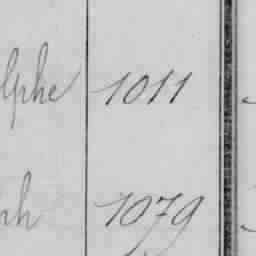 lphe 1011
ph 1079